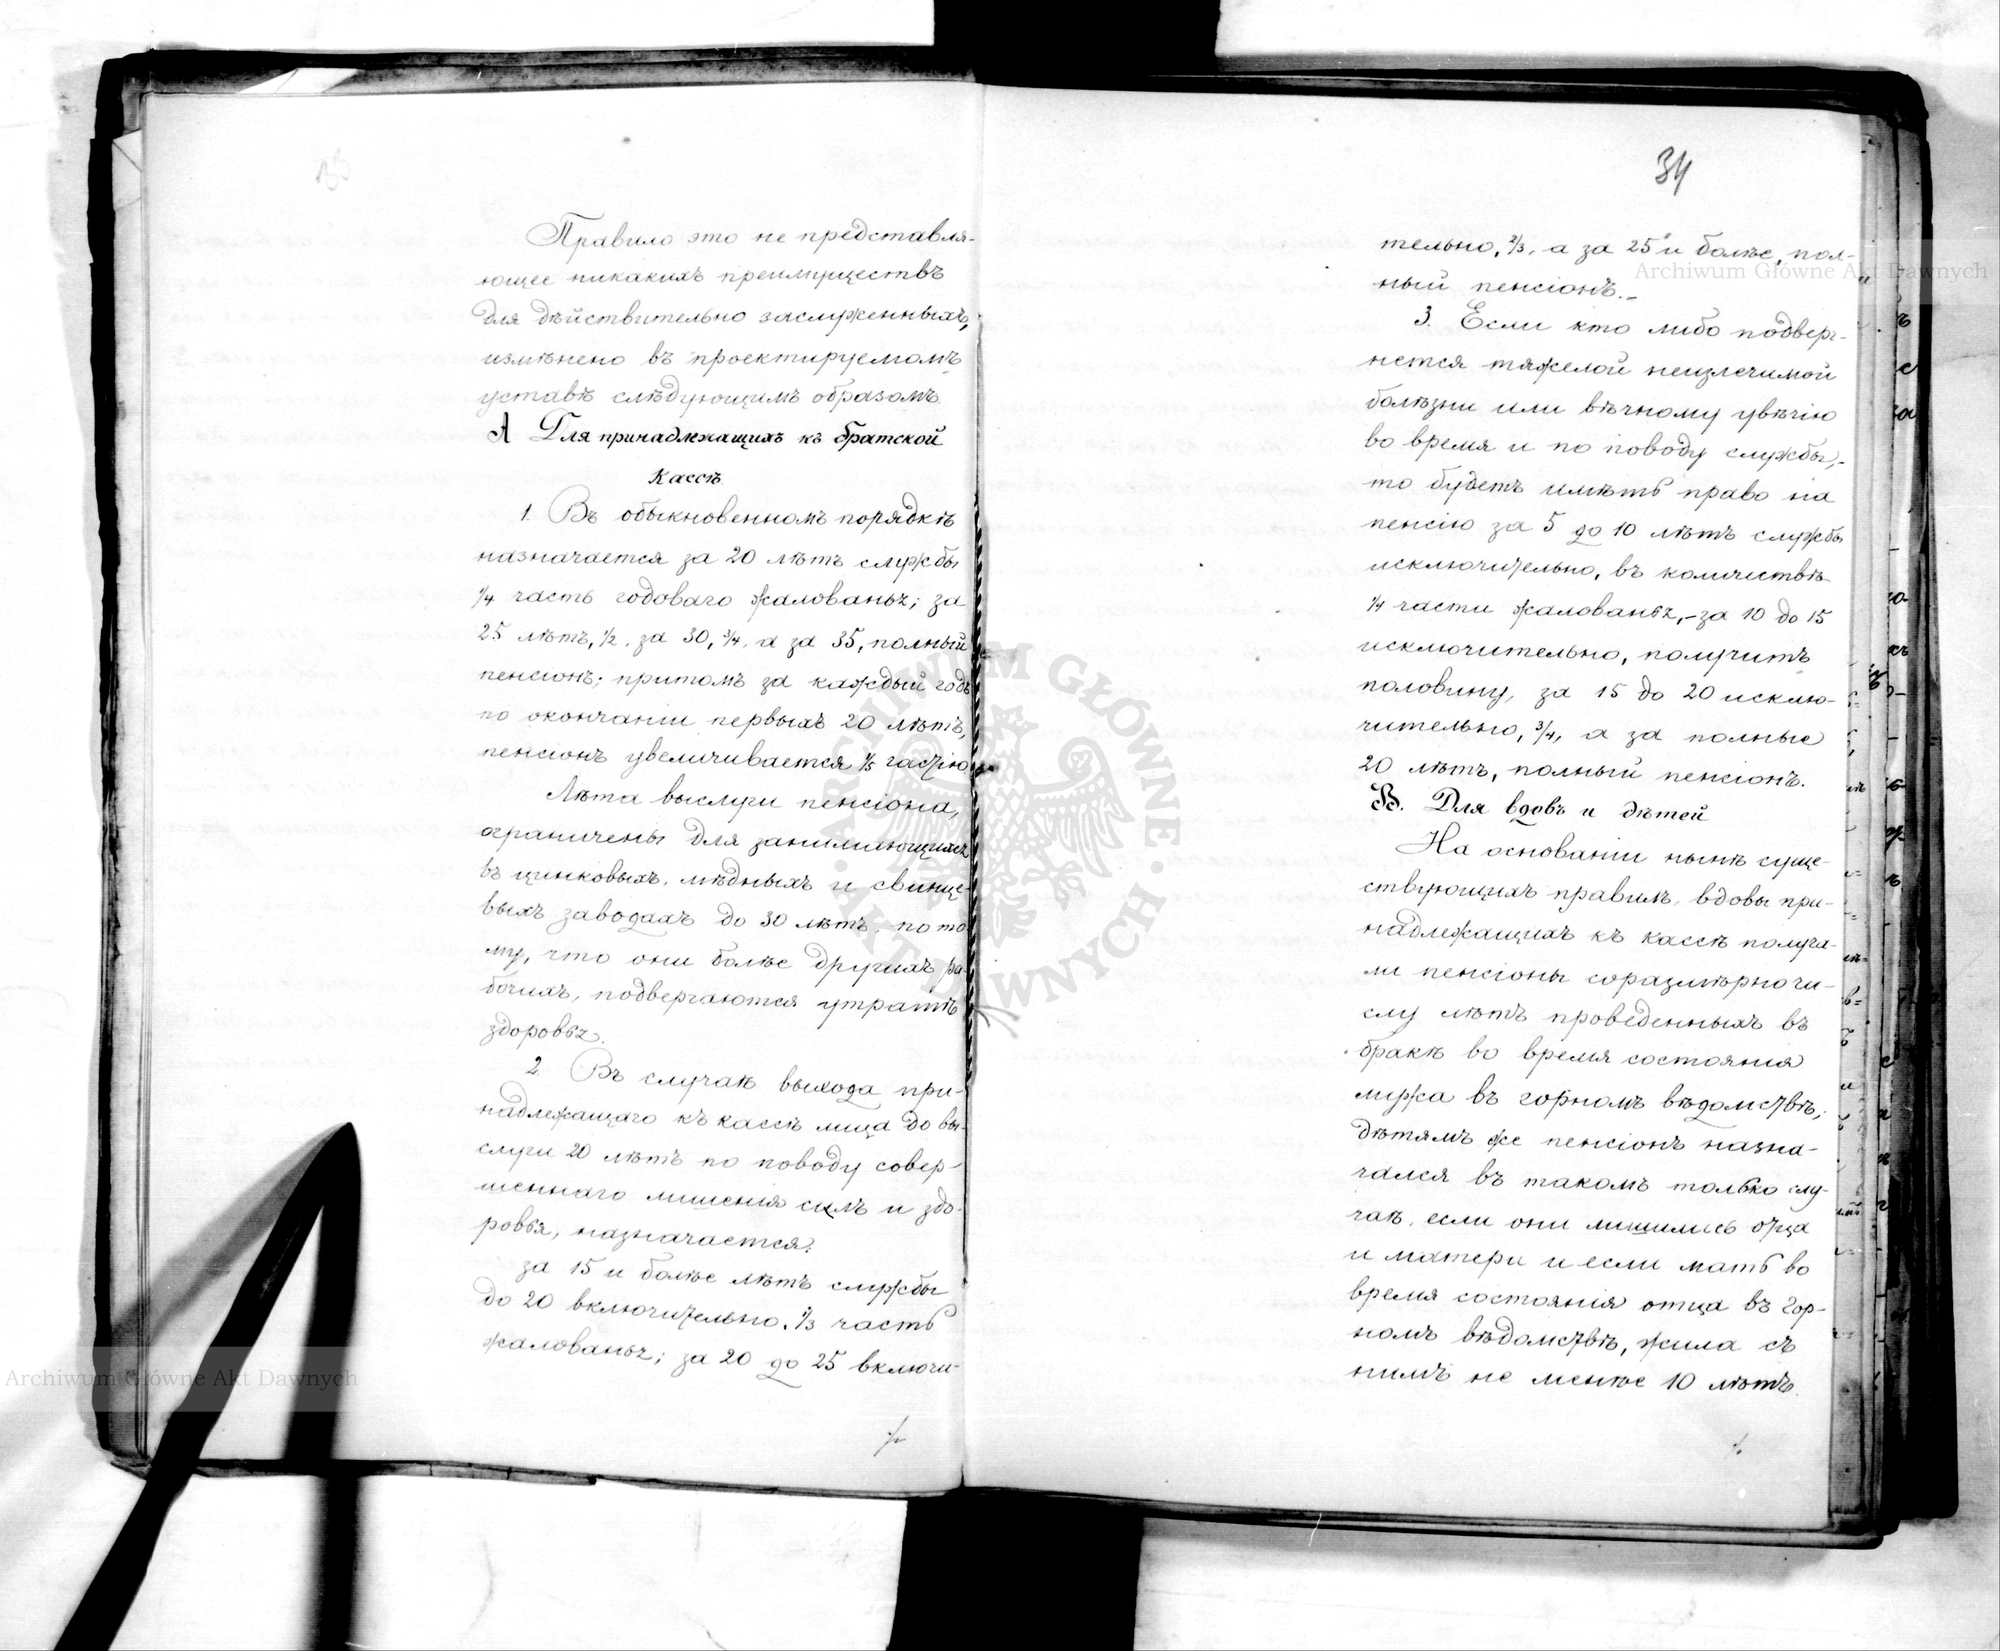 Правило это не представля-
ющее никакихъ преимуществъ
для дѣйствительно заслуженныхъ,
измѣнено въ проектируемомъ
уставѣ слѣдующимъ образомъ.
А Для принадлежащихъ къ братской
кассѣ.
1. Въ обыкновенномъ порядкѣ
назначается за 20 лѣтъ службы
1/4 часть годоваго жалованья; за
25 лѣтъ, 1/2, за 30, 3/4, а за 35, полный
пенсіонъ; притомъ за каждый годъ
по окончаніи первыхъ 20 лѣтъ,
пенсіонъ увеличивается 1/5 частію.
Лѣта выслуги пенсіона,
ограничены для занимающихся
въ цинковыхъ, мѣдныхъ и свинце-
выхъ заводахъ до 30 лѣтъ, по то
му, что они болѣе другихъ ра-
бочихъ, подвергаются утратѣ
здоровья.
2. Въ случаѣ выхода при-
надлежащаго къ кассѣ лица до вы-
слуги 20 лѣтъ по поводу совер-
шеннаго лишенія силъ и здо-
ровья, назначается:
за 15 и болѣе лѣтъ службы
до 20 включительно, 1/3 часть
жалованья; за 20 до 25 включи-
34
тельно, 2/3, а за 25 и болѣе, пол-
ный пенсіонъ.
3. Если кто либо подверг-
нется тяжелой неизлечимой
болѣзни или вѣчному увѣчію
во время и по поводу службы,-
то будетъ имѣть право на
пенсію за 5 до 10 лѣтъ службы
исключительно, въ количествѣ
1/4 части жалованья,-за 10 до 15
исключительно, получитъ
половину, за 15 до 20 исклю-
чительно, 3/4, а за полные
20 лѣтъ, полный пенсіонъ.
В. Для вдовъ и дѣтей
На основаніи нынѣ суще-
ствующихъ правилъ, вдовы при-
надлежащихъ къ кассѣ получа-
ли пенсіоны соразмѣрно чи-
слу лѣтъ проведенныхъ въ
бракѣ во время состоянія
мужа въ горномъ вѣдомствѣ;
дѣтямъ же пенсіонъ назна-
чался въ такомъ только слу-
чаѣ, если они лишились отца
и матери и если мать во
время состоянія отца въ гор-
номъ вѣдомствѣ, жила съ
нимъ не менѣе 10 лѣтъ.
Archiwum Główne Akt Dawnych
Archiwum Główne Akt Dawnych
ARCHIWUM GŁÓWNE AKT DAWNYCH